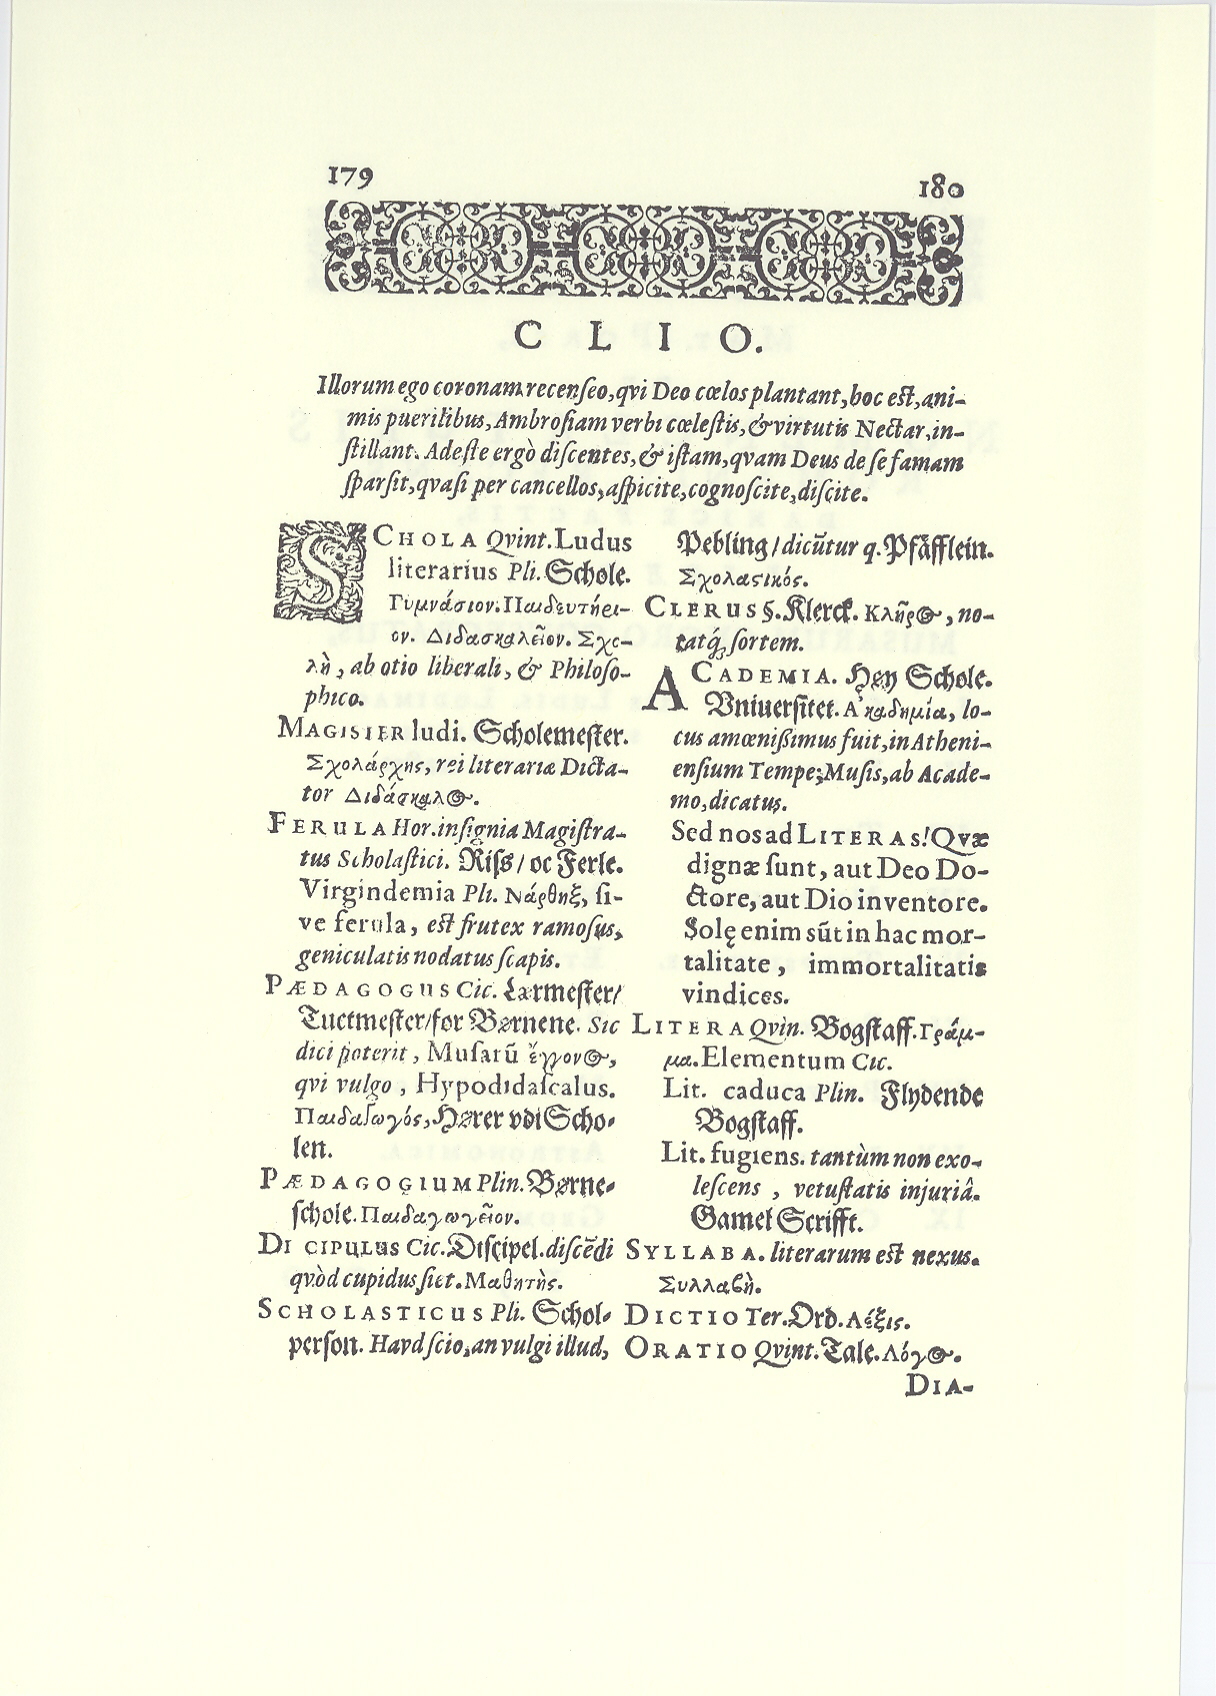 179
180
CLIO.
Illorum ego coronam recenſeo, qvi Deo cœlos plantant, hoc eſt, ani-
mis puerilibus, Ambroſiam verbi cœleſtis, & virtutis Nectar, in-
ſtillant. Adeſte ergò diſcentes, & iſtam, qvam Deus de ſe famam
ſparſit, qvaſi per cancellos, aſpicite, cognoſcite, diſcite.
SCHOLA Qvint. Ludus
literarius Pli. Schole.
Γυμνάσιον. Παιδευτήρι-
ον. Διδασκαλεῖον. Σχο-
λὴ, ab otio liberali, & Philoſo-
phico.
MAGISTER ludi. Scholemeſter.
Σχολάρχης, rei literariæ Dicta-
tor Διδάσκαλος.
FERULA Hor. inſignia Magiſtra-
tus Scholaſtici. Riſß / oc Ferle.
Virgindemia Pli. Νάρθηξ, ſi-
ve ferula, eſt frutex ramoſus,
geniculatis nodatus ſcapis.
PÆDAGOGUS Cic. Lærmeſter/
Tuctmeſter/for Børnene. Sic
dici poterit, Muſarū ἔγγονος,
qvi vulgo, Hypodidaſcalus.
Παιδαγωγός, Hører vdi Scho-
len.
PÆDAGOGIUM Plin. Børne-
ſchole. Παιδαγωγεῖον.
DISCIPULUS Cic. Diſcipel. diſcēdi
qvòd cupidus ſiet. Μαθητὴς.
SCHOLASTICUS Pli. Schol-
perſon. Havd ſcio, an vulgi illud,
Pebling / dicūtur q. Pfäfflein.
Σχολαστικός.
CLERUS §. Klerck. Κλῆρος, no-
tatq́; ſortem.
ACADEMIA. Høy Schole.
Vniuerſitet. Ἀκαδημία, lo-
cus amœniſſimus fuit, in Atheni-
enſium Tempe, Muſis, ab Acade-
mo, dicatus.
Sed nos ad LITERAS! Qvæ
dignæ ſunt, aut Deo Do-
ctore, aut Dio inventore.
Solę enim sūt in hac mor-
talitate, immortalitatis
vindices.
LITERA Qvin. Bogſtaff. Γράμ-
μα. Elementum Cic.
Lit. caduca Plin. Flydende
Bogſtaff.
Lit. fugiens. tantùm non exo-
leſcens, vetuſtatis injuriâ.
Gamel Scrifft.
SYLLABA. literarum eſt nexus.
Συλλαβὴ.
DICTIO Ter. Ord. Λέξις.
ORATIO Qvint. Tale. Λόγος.
DIA-